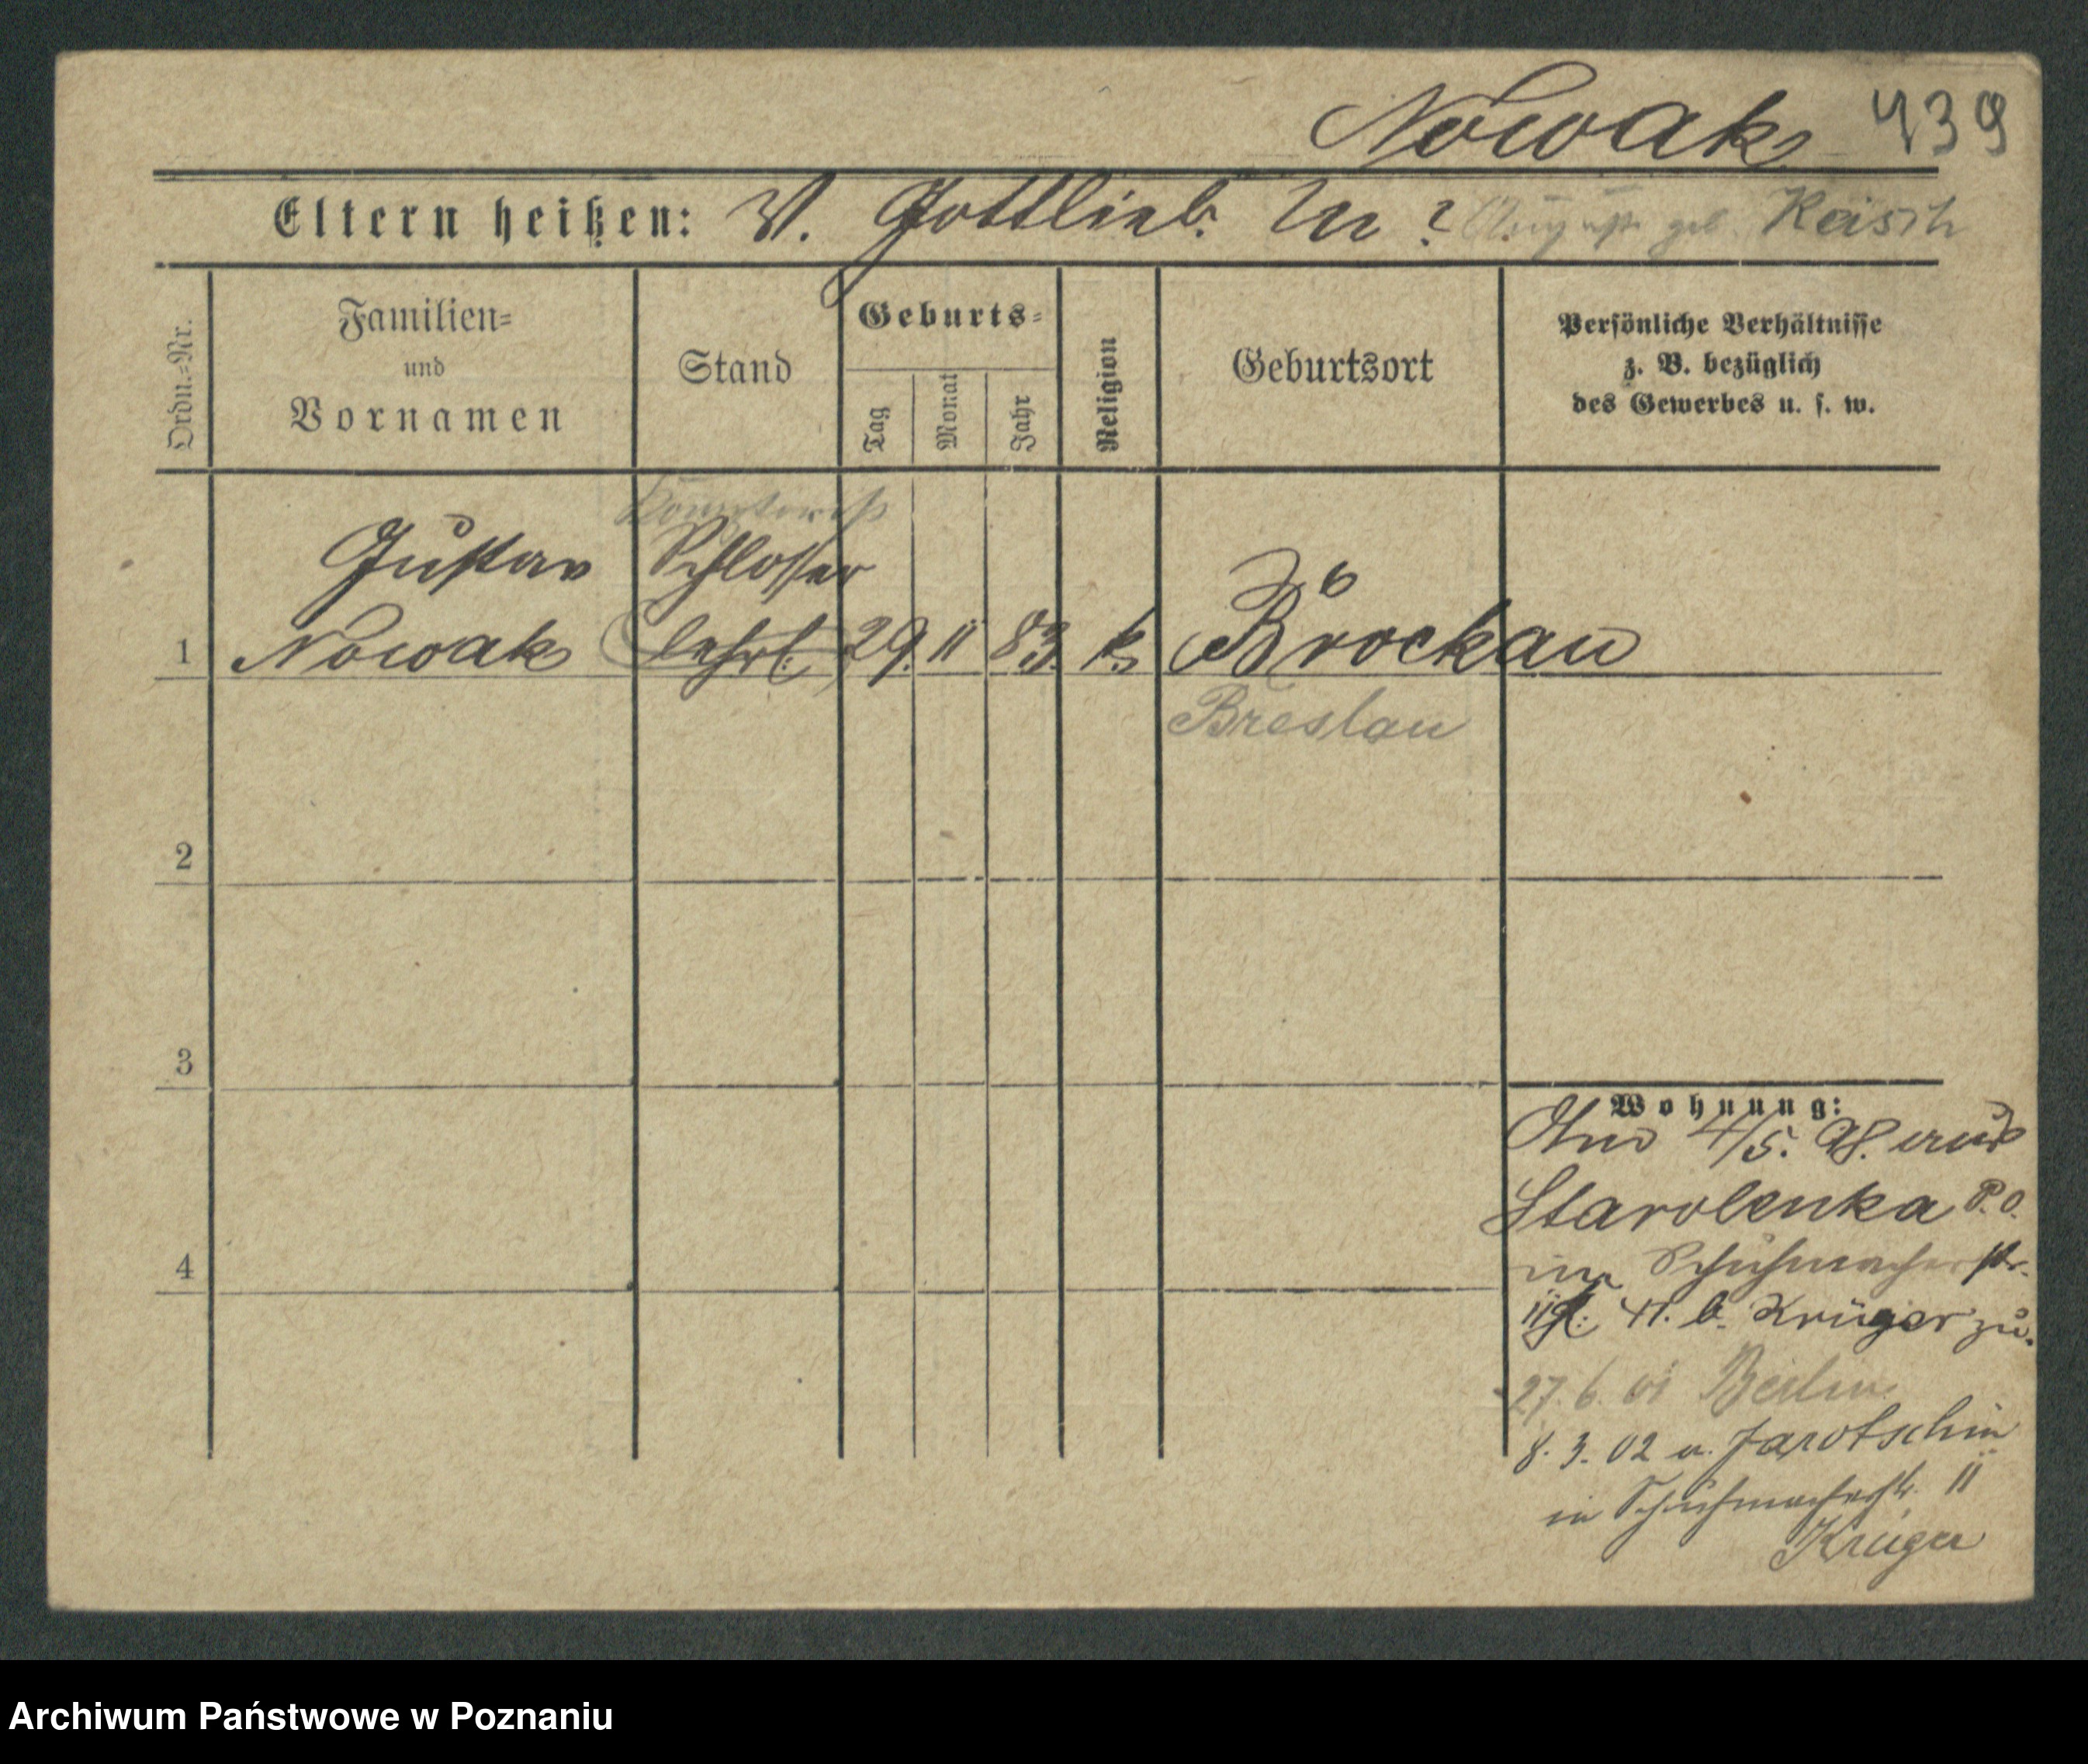 Nowak 439
Eltern heißen: V. Gottlieb. M ? August geb. Reisch
Ordn.-Nr.
Familien-
und
Vornamen
Stand
Geburts-
Tag
Monat
Jahr
Religion
Geburtsort
Persönliche Verhältnisse
z. B. bezüglich
des Gewerbes u. s. w.
Gustav Schlosser
1 Nowak lehrl. 29. 11 83. k. Brockau
Breslau
2
3
4
Wohnung:
4/5. 98. aus
Starolenka P. O.
in Schuhmacherstr.
11 b. Krüger zu.
27. 6. 01 Berlin.
8. 3. 02 a. Jarotschin
in Schuhmacherstr. 11
Krüger
Archiwum Państwowe w Poznaniu